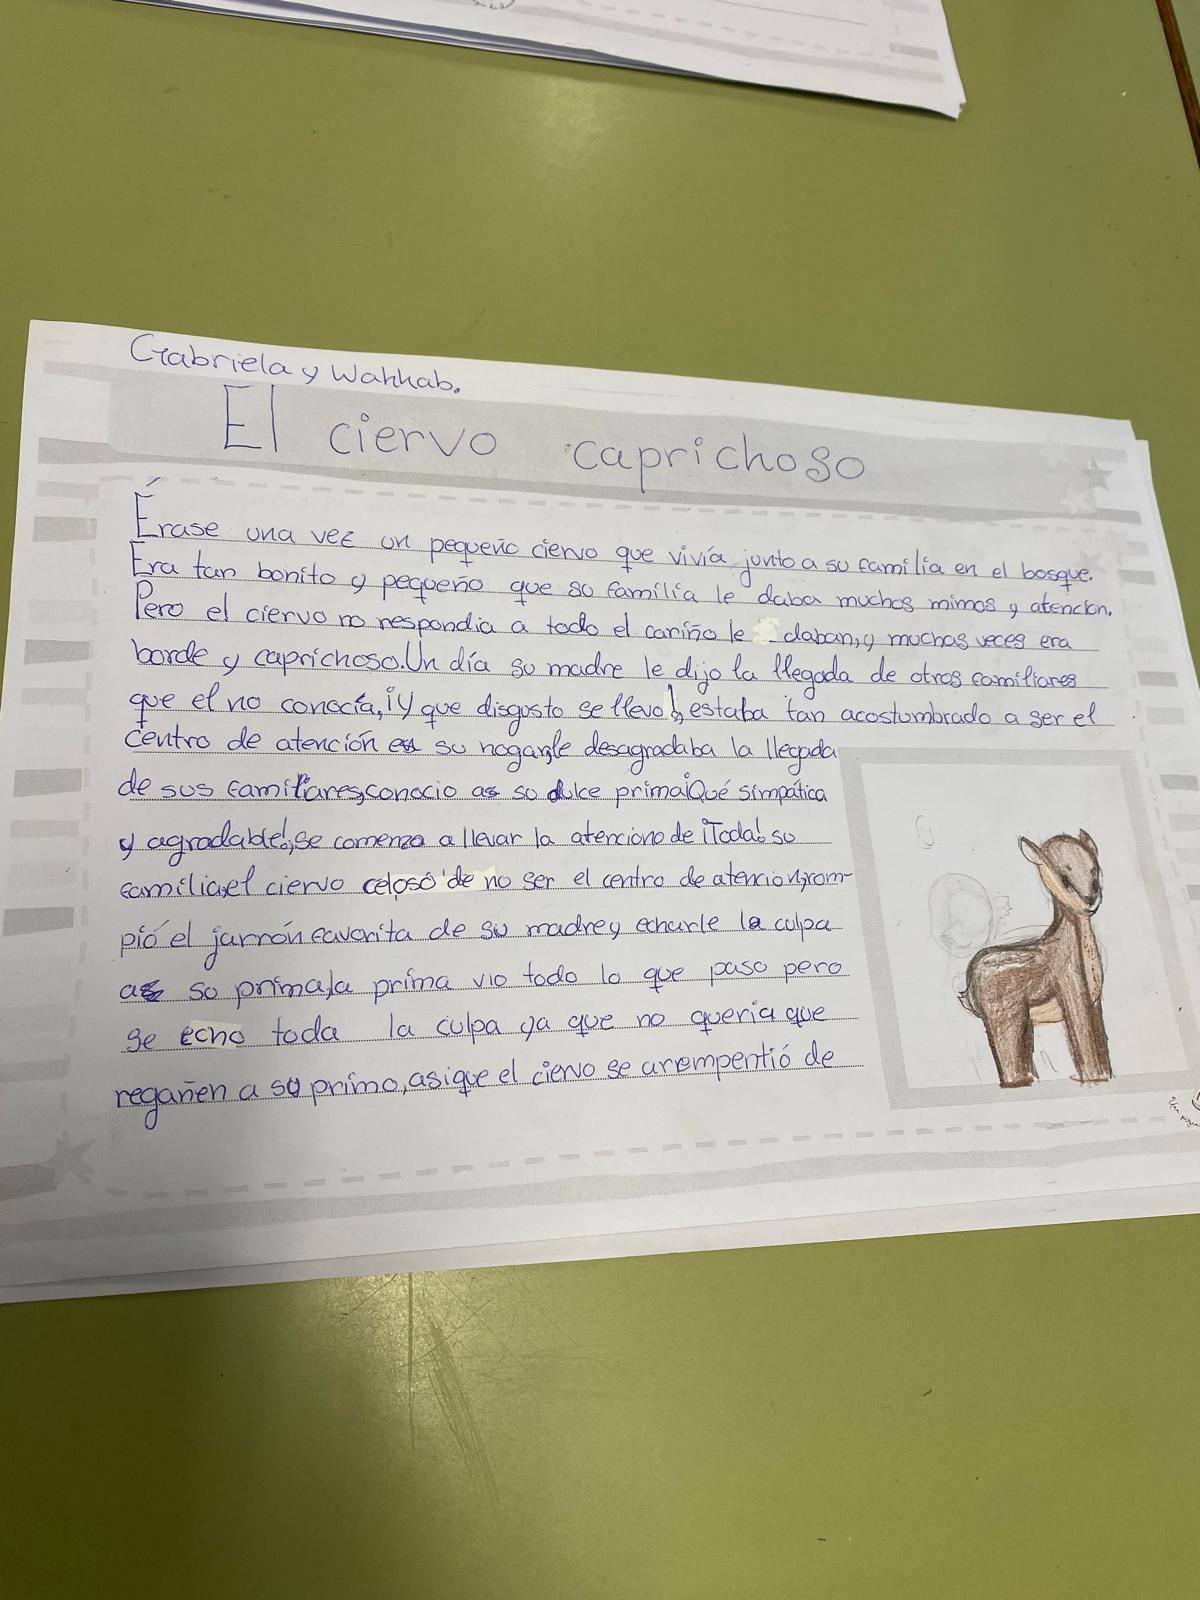 Gabriela y Wahhab.
El ciervo caprichoso
Érase una vez un pequeño ciervo que vivía junto a su familia en el bosque.
Era tan bonito y pequeño que su familia le daba muchos mimos y atencion.
Pero el ciervo no respondia a todo el cariño le daban, y muchas veces era
borde y caprichoso. Un día su madre le dijo la llegada de otros familiares
que el no conocía, ¡y que disgusto se llevo!, estaba tan acostumbrado a ser el
centro de atención en su hogar, le desagradaba la llegada
de sus familiares, conocio a su dulce prima ¡Qué simpática
y agradable!, se comenzo a llevar la atencion de ¡Toda! su
familia, el ciervo celoso de no ser el centro de atencion, rom-
pió el jarrón favorita de su madre y echarle la culpa
a su prima, la prima vio todo lo que paso pero
se echo toda la culpa ya que no quería que
regañen a su primo, asi que el ciervo se arrempentió de